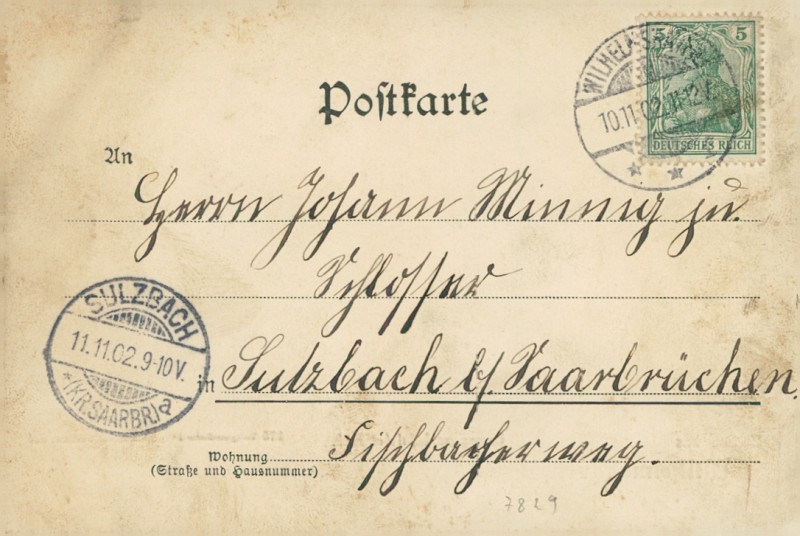 Postkarte
5
DEUTSCHES REICH
10.11.02.11-12
An
Herrn Johann Minnig ju.
Schlosser
SULZBACH
11.11.02.9-10V.
*(KR.SAARBR)a
in Sulzbach b/ Saarbrücken,
Fischbacherweg.
Wohnung
(Straße und Hausnummer)
7829